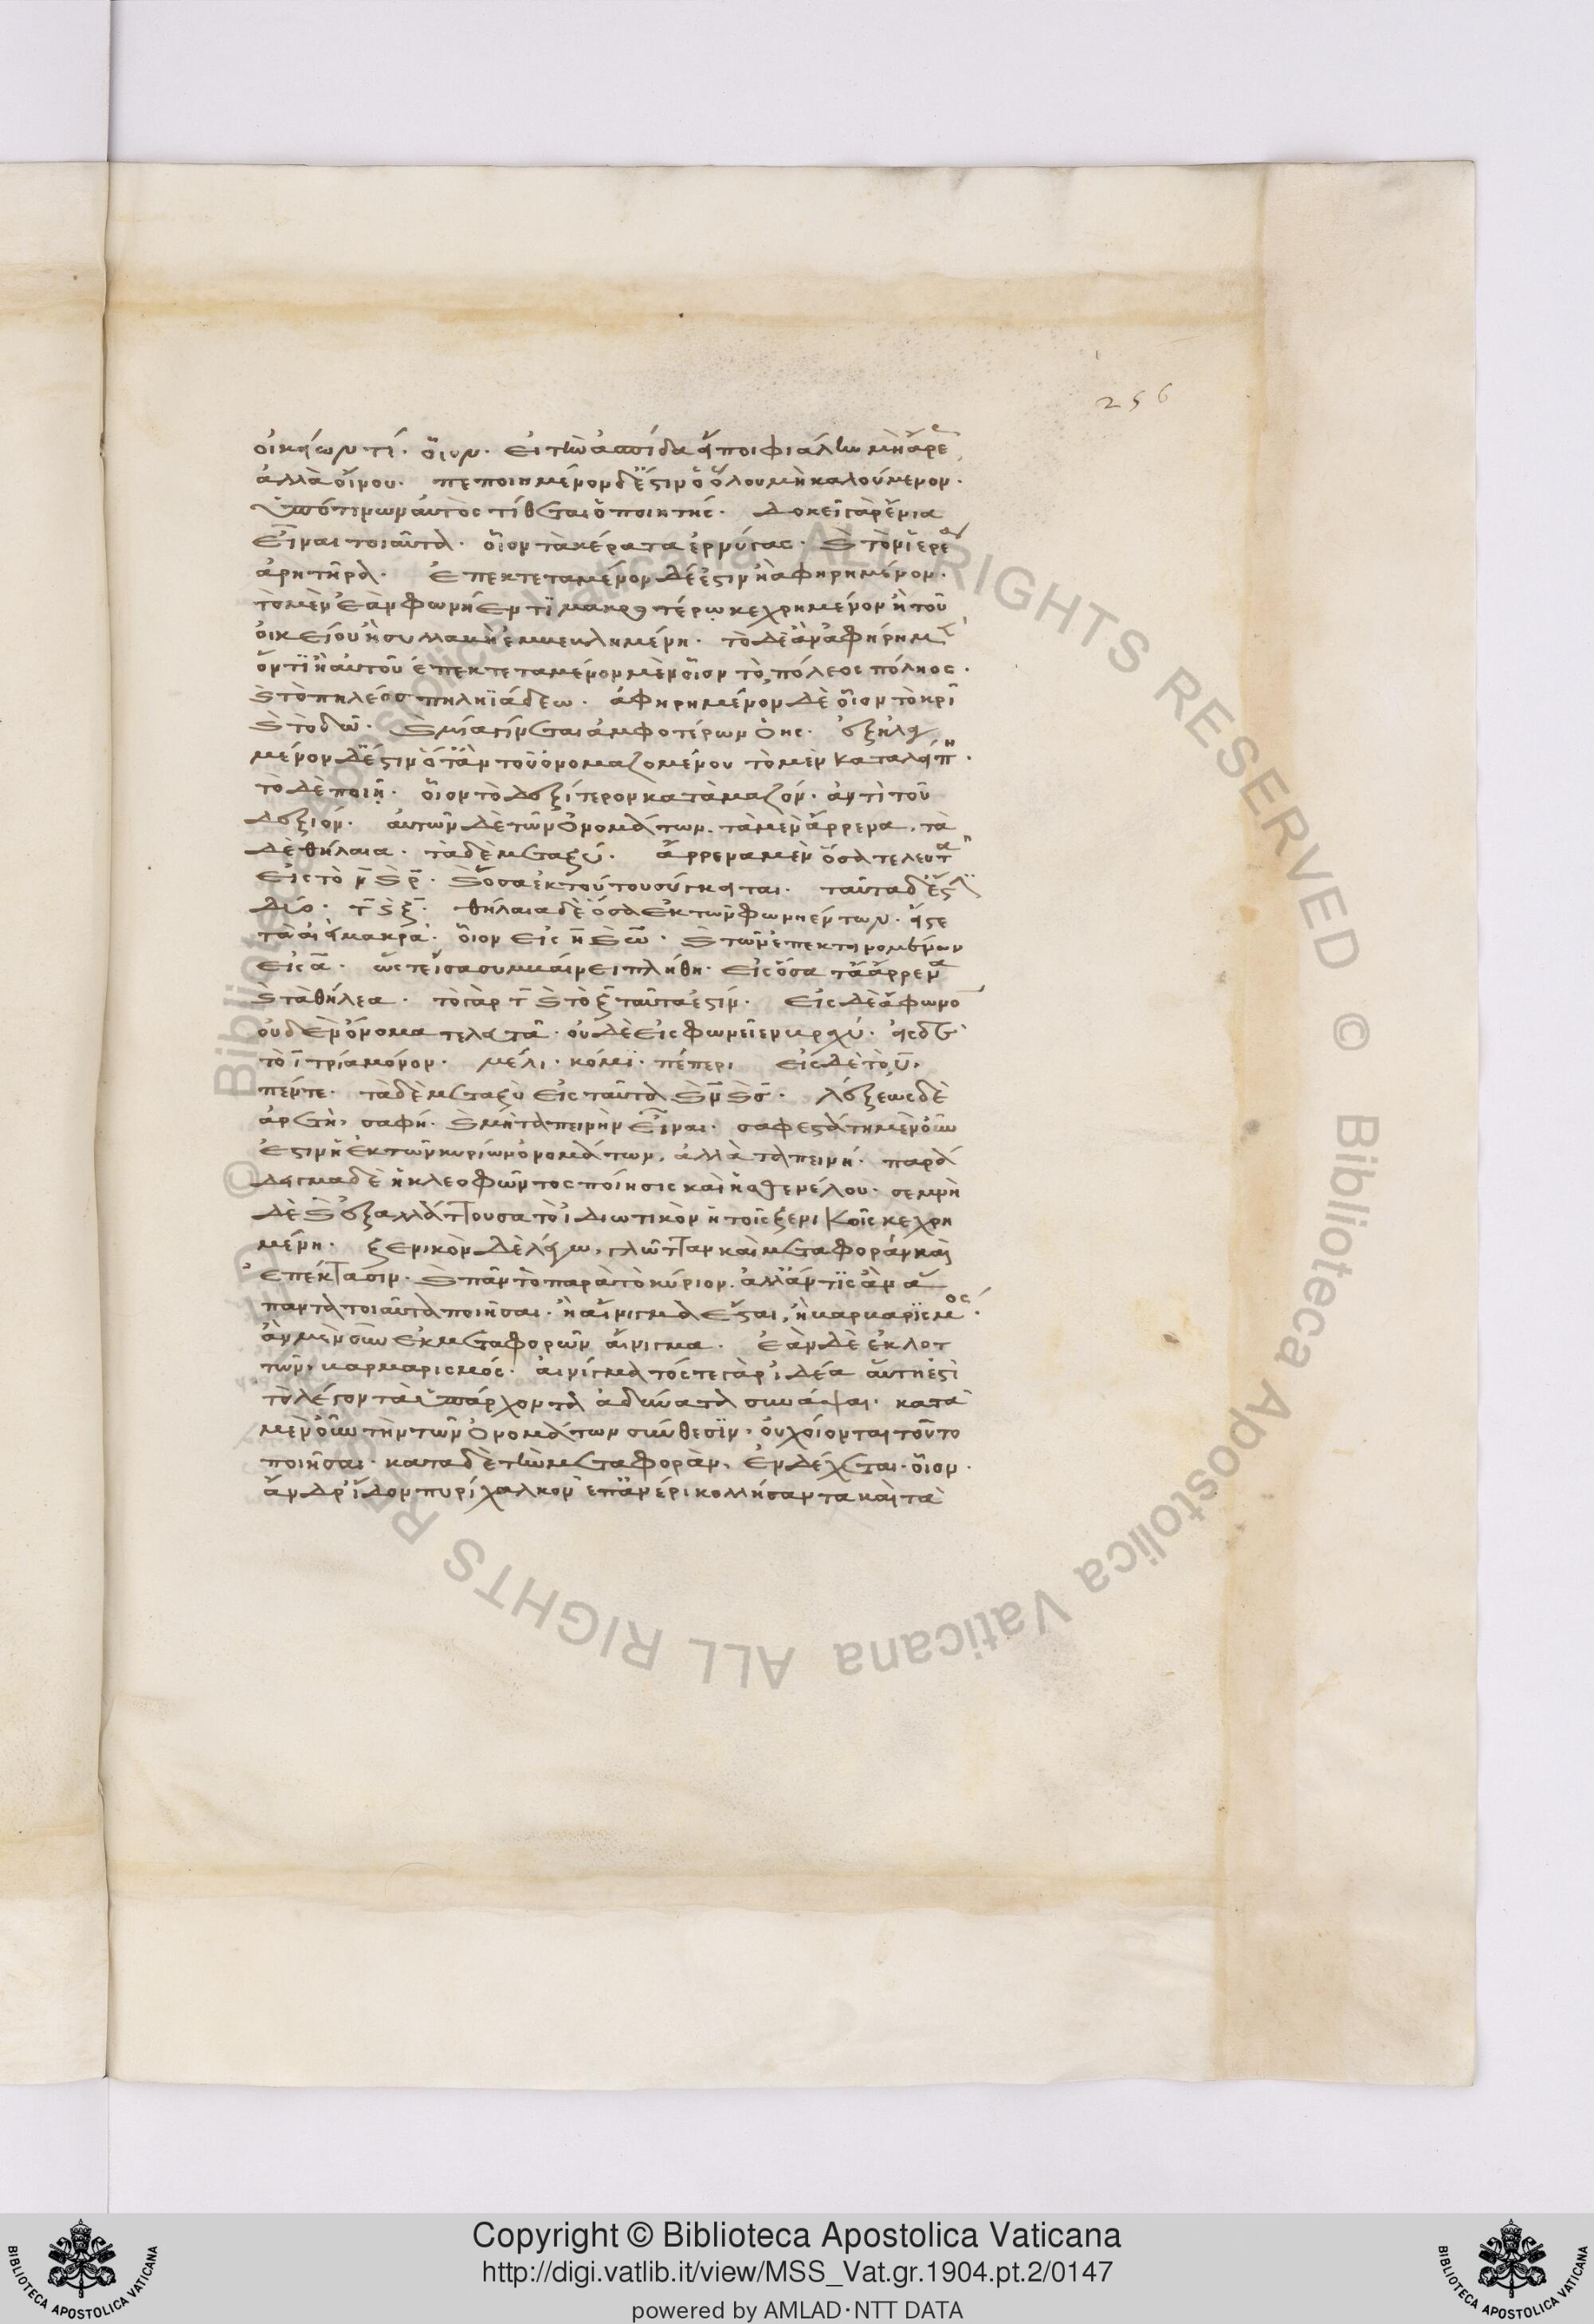 256
οἰκείων τί. οἷον. εἰ τὴν ἀσπίδα εἴποι φιάλην μὴ ἄρε
ἀλλὰ οἴνου. πεποιημένον δ' ἐστὶν ὃ ὅλου μὴ καλούμενον.
ὑπό τινων αὐτὸς τίθεται ὁ ποιητής. δοκεῖ γὰρ ἔνια
εἶναι τοιαῦτα. οἷον τὰ κέρατα ἐρνύγας. καὶ τὸν ἱερέα
ἀρητῆρα. ἐπεκτεταμένον δέ ἐστιν ἢ ἀφηρημένον.
τὸ μὲν ἐὰν φωνήεντι μακροτέρω κεχρημένον ἢ τοῦ
οἰκείου ἢ συλλαβῇ ἐμβεβλημένη. τὸ δὲ ἂν ἀφηρημ
ον τι ἢ αὐτοῦ ἐπεκτεταμένον μὲν οἷον τὸ πόλεος πόληος.
καὶ τὸ πηλέος πηληϊάδεω. ἀφηρημένον δὲ οἷον τὸ κρῖ
καὶ τὸ δῶ. καὶ μία γίνεται ἀμφοτέρων ὄης. ἐξηλα
μένον δ' ἐστὶν ὅταν τοῦ ὀνομαζομένου τὸ μὲν καταλείπῃ.
τὸ δὲ ποιῇ. οἷον τὸ δεξίτερον κατὰ μαζόν. ἀντὶ τοῦ
δεξιόν. αὐτῶν δὲ τῶν ὀνομάτων. τὰ μὲν ἄρρενα. τὰ
δὲ θήλαια. τὰ δὲ μεταξύ. ἄρρενα μὲν ὅσα τελευτᾷ
εἰς τὸ ν καὶ ρ. καὶ ὅσα ἐκ τούτου σύγκειται. ταῦτα δ' ἐστὶ
δύο. ψ καὶ ξ. θήλαια δὲ ὅσα ἐκ τῶν φωνηέντων. εἴς τε
τὰ ἀεὶ μακρά. οἷον εἰς η καὶ ω. καὶ τῶν ἐπεκτεινομένων
εἰς α. ὥστε ἴσα συμβαίνει πλήθη. εἰς ὅσα τὰ ἄρρενα
καὶ τὰ θήλεα. τὸ γὰρ ψ καὶ τὸ ξ ταῦτά ἐστιν. εἰς δὲ ἄφωνον
οὐδὲν ὄνομα τελευτᾷ. οὐδὲ εἰς φωνῆεν βραχύ. εἰς δὲ
τὸ ι τρία μόνον. μέλι. κόμι. πέπερι εἰς δὲ τὸ υ.
πέντε. τὰ δὲ μεταξὺ εἰς ταῦτα καὶ ν καὶ σ. λέξεως δὲ
ἀρετὴ. σαφῆ. καὶ μὴ ταπεινὴν εἶναι. σαφεστάτη μὲν οὖν
ἐστιν ἡ ἐκ τῶν κυρίων ὀνομάτων, ἀλλὰ ταπεινή. παρά
δειγμα δὲ ἡ κλεοφῶντος ποίησις καὶ ἡ σθενέλου. σεμνὴ
δὲ καὶ ἐξαλλάττουσα τὸ ἰδιωτικὸν ἡ τοῖς ξενικοῖς κεχρη
μένη. ξενικὸν δὲ λέγω, γλῶτταν καὶ μεταφορὰν καὶ
ἐπέκτασιν. καὶ πᾶν τὸ παρὰ τὸ κύριον. ἀλλ' ἄν τις ἂν ἅ
παντα τοιαῦτα ποιῆσαι. ἢ αἴνιγμα ἔσται, ἢ βαρβαρισμός.
ἂν μὲν οὖν ἐκ μεταφορῶν αἴνιγμα. ἐὰν δὲ ἐκ γλοτ
τῶν, βαρβαρισμός. αἰνίγματός τε γὰρ ἰδέα αὕτη ἐστὶ
τὸ λέγοντα ὑπάρχοντα ἀδύνατα συνάψαι. κατὰ
μὲν οὖν τὴν τῶν ὀνομάτων σύνθεσιν. οὐχ οἷόν ται τοῦτο
ποιῆσαι. κατὰ δὲ τὴν μεταφορὰν. ἐνδέχεται. οἷον.
ἄνδρ' ἴδον πυρὶ χαλκὸν ἐπ' ἀνέρι κολλήσαντα καὶ τὰ
Copyright © Biblioteca Apostolica Vaticana
http://digi.vatlib.it/view/MSS_Vat.gr.1904.pt.2/0147
powered by AMLAD·NTT DATA